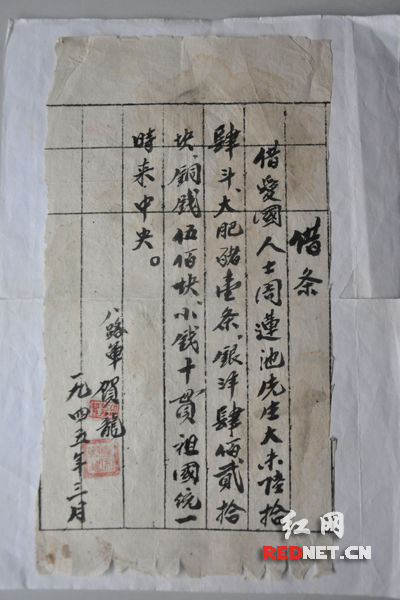 借条
借愛國人士周蓮池先生大米陸拾
肆斗、大肥豬壹条、銀洋肆佰貳拾
块、銅钱伍佰块、小钱十贯、祖國统一
時来中央。
八路軍 賀龍
一九四五年三月
红网
REDNET.CN